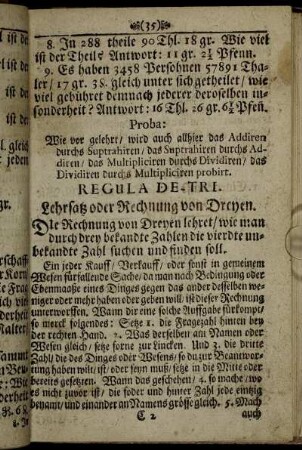 (35)
8. In 288 theile 90 Thl. 18 gr. Wie viel
ist der Theil? Antwort: 11 gr. 2¼ Pfenn.
9. Es haben 3458 Persohnen 57891 Tha-
ler/ 17 gr. 38. gleich unter sich getheilet/ wie
viel gebühret demnach jederer deroselben in-
sonderheit? Antwort: 16 Thl. 26 gr. 6¾ Pfen.
Proba:
Wie vor gelehrt/ wird auch allhier das Addiren
durchs Suptrahiren/ das Suptrahiren durchs Ad-
diren/ das Multipliciren durchs Dividiren/ das
Dividiren durchs Multipliciren probirt.
REGULA DE-TRI.
Lehrsatz oder Rechnung von Dreyen.
DIe Rechnung von Dreyen lehret/ wie man
durch drey bekandte Zahlen die vierdte un-
bekandte Zahl suchen und finden soll.
Ein jeder Kauff/ Verkauff/ oder sonst in gemeinem
Wesen fürfallende Sache/ da man nach Bedingung oder
Ebenmaaße eines Dinges gegen das ander desselben we-
niger oder mehr haben oder geben will/ ist dieser Rechnung
unterworffen. Wann dir eine solche Auffgabe fürkompt/
so merck folgendes: Setze 1. die Fragezahl hinten bey
der rechten Hand. 2. Was derselben am Namen oder
Wesen gleich/ setze forne zur Lincken. Und 3. die dritte
Zahl/ die des Dinges oder Wesens/ so du zur Beantwor-
tung haben wilt/ ist/ oder seyn muß/ setze in die Mitte oder
bereits gesetzen. Wann das geschehen/ 4. so mache/ wo
es nicht zuvor ist/ die foder und hinter Zahl jede einzig
benamt/ und einander an Namens grösse gleich. 5. Mach
C 2 auch